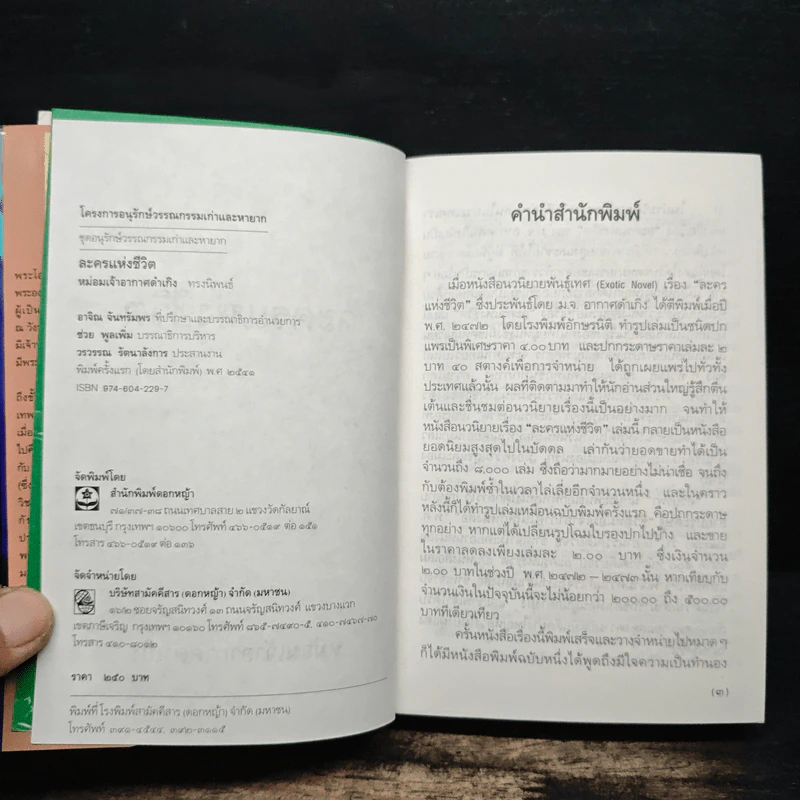 โครงการอนุรักษ์วรรณกรรมเก่าและหายาก
ชุดอนุรักษ์วรรณกรรมเก่าและหายาก
ละครแห่งชีวิต
หม่อมเจ้าอากาศดำเกิง ทรงนิพนธ์
อาจิณ จันทรัมพร ที่ปรึกษาและบรรณาธิการอำนวยการ
ช่วย พูลเพิ่ม บรรณาธิการบริหาร
วรวรรณ รัตนาลังการ ประสานงาน
พิมพ์ครั้งแรก (โดยสำนักพิมพ์) พ.ศ ๒๕๔๑
ISBN 974-604-229-7
จัดพิมพ์โดย
สำนักพิมพ์ดอกหญ้า
๗๑/๓๗-๓๘ ถนนเทศบาลสาย ๒ แขวงวัดกัลยาณ์
เขตธนบุรี กรุงเทพฯ ๑๐๖๐๐ โทรศัพท์ ๔๖๖-๐๕๑๙ ต่อ ๑๕๑
โทรสาร ๔๖๖-๐๕๑๙ ต่อ ๑๓๖
จัดจำหน่ายโดย
บริษัทสามัคคีสาร (ดอกหญ้า) จำกัด (มหาชน)
๑๖/๒ ซอยจรัญสนิทวงศ์ ๑๓ ถนนจรัญสนิทวงศ์ แขวงบางแวก
เขตภาษีเจริญ กรุงเทพฯ ๑๐๑๖๐ โทรศัพท์ ๘๖๕-๗๔๙๐-๕, ๔๑๐-๗๔๖๗-๗๐
โทรสาร ๔๑๐-๘๐๑๒
ราคา ๒๕๐ บาท
พิมพ์ที่ โรงพิมพ์สามัคคีสาร (ดอกหญ้า) จำกัด (มหาชน)
โทรศัพท์ ๓๙๑-๔๕๔๔, ๓๙๒-๓๑๑๕
คำนำสำนักพิมพ์
เมื่อหนังสือนวนิยายพันธุ์เทศ (Exotic Novel) เรื่อง “ละคร
แห่งชีวิต” ซึ่งประพันธ์โดย ม.จ. อากาศดำเกิง ได้ตีพิมพ์เมื่อปี
พ.ศ. ๒๔๗๒ โดยโรงพิมพ์อักษรนิติ ทำรูปเล่มเป็นชนิดปก
แพรเป็นพิเศษราคา ๔.๐๐ บาท และปกกระดาษราคาเล่มละ ๒
บาท ๕๐ สตางค์เพื่อการจำหน่าย ได้ถูกเผยแพร่ไปทั่วทั้ง
ประเทศแล้วนั้น ผลที่ติดตามมาทำให้นักอ่านส่วนใหญ่รู้สึกตื่น
เต้นและชื่นชมต่อนวนิยายเรื่องนี้เป็นอย่างมาก จนทำให้
หนังสือนวนิยายเรื่อง “ละครแห่งชีวิต” เล่มนี้ กลายเป็นหนังสือ
ยอดนิยมสูงสุดไปในบัดดล เล่ากันว่ายอดขายทำได้เป็น
จำนวนถึง ๘,๐๐๐ เล่ม ซึ่งถือว่ามากมายอย่างไม่น่าเชื่อ จนถึง
กับต้องพิมพ์ซ้ำในเวลาไล่เลี่ยอีกจำนวนหนึ่ง และในคราว
หลังนี้ก็ได้ทำรูปเล่มเหมือนฉบับพิมพ์ครั้งแรก คือปกกระดาษ
ทุกอย่าง หากแต่ได้เปลี่ยนรูปโฉมใบรองปกไปบ้าง และขาย
ในราคาลดลงเพียงเล่มละ ๒.๐๐ บาท ซึ่งเงินจำนวน
๒.๐๐ บาทในช่วงปี พ.ศ ๒๔๗๒ – ๒๔๗๓ นั้น หากเทียบกับ
จำนวนเงินในปัจจุบันนี้จะไม่น้อยกว่า ๒๐๐.๐๐ ถึง ๕๐๐.๐๐
บาททีเดียวเทียว
ครั้นหนังสือเรื่องนี้พิมพ์เสร็จและวางจำหน่ายไปหมาด ๆ
ก็ได้มีหนังสือพิมพ์ฉบับหนึ่งได้พูดถึงมีใจความเป็นทำนอง
(๓)